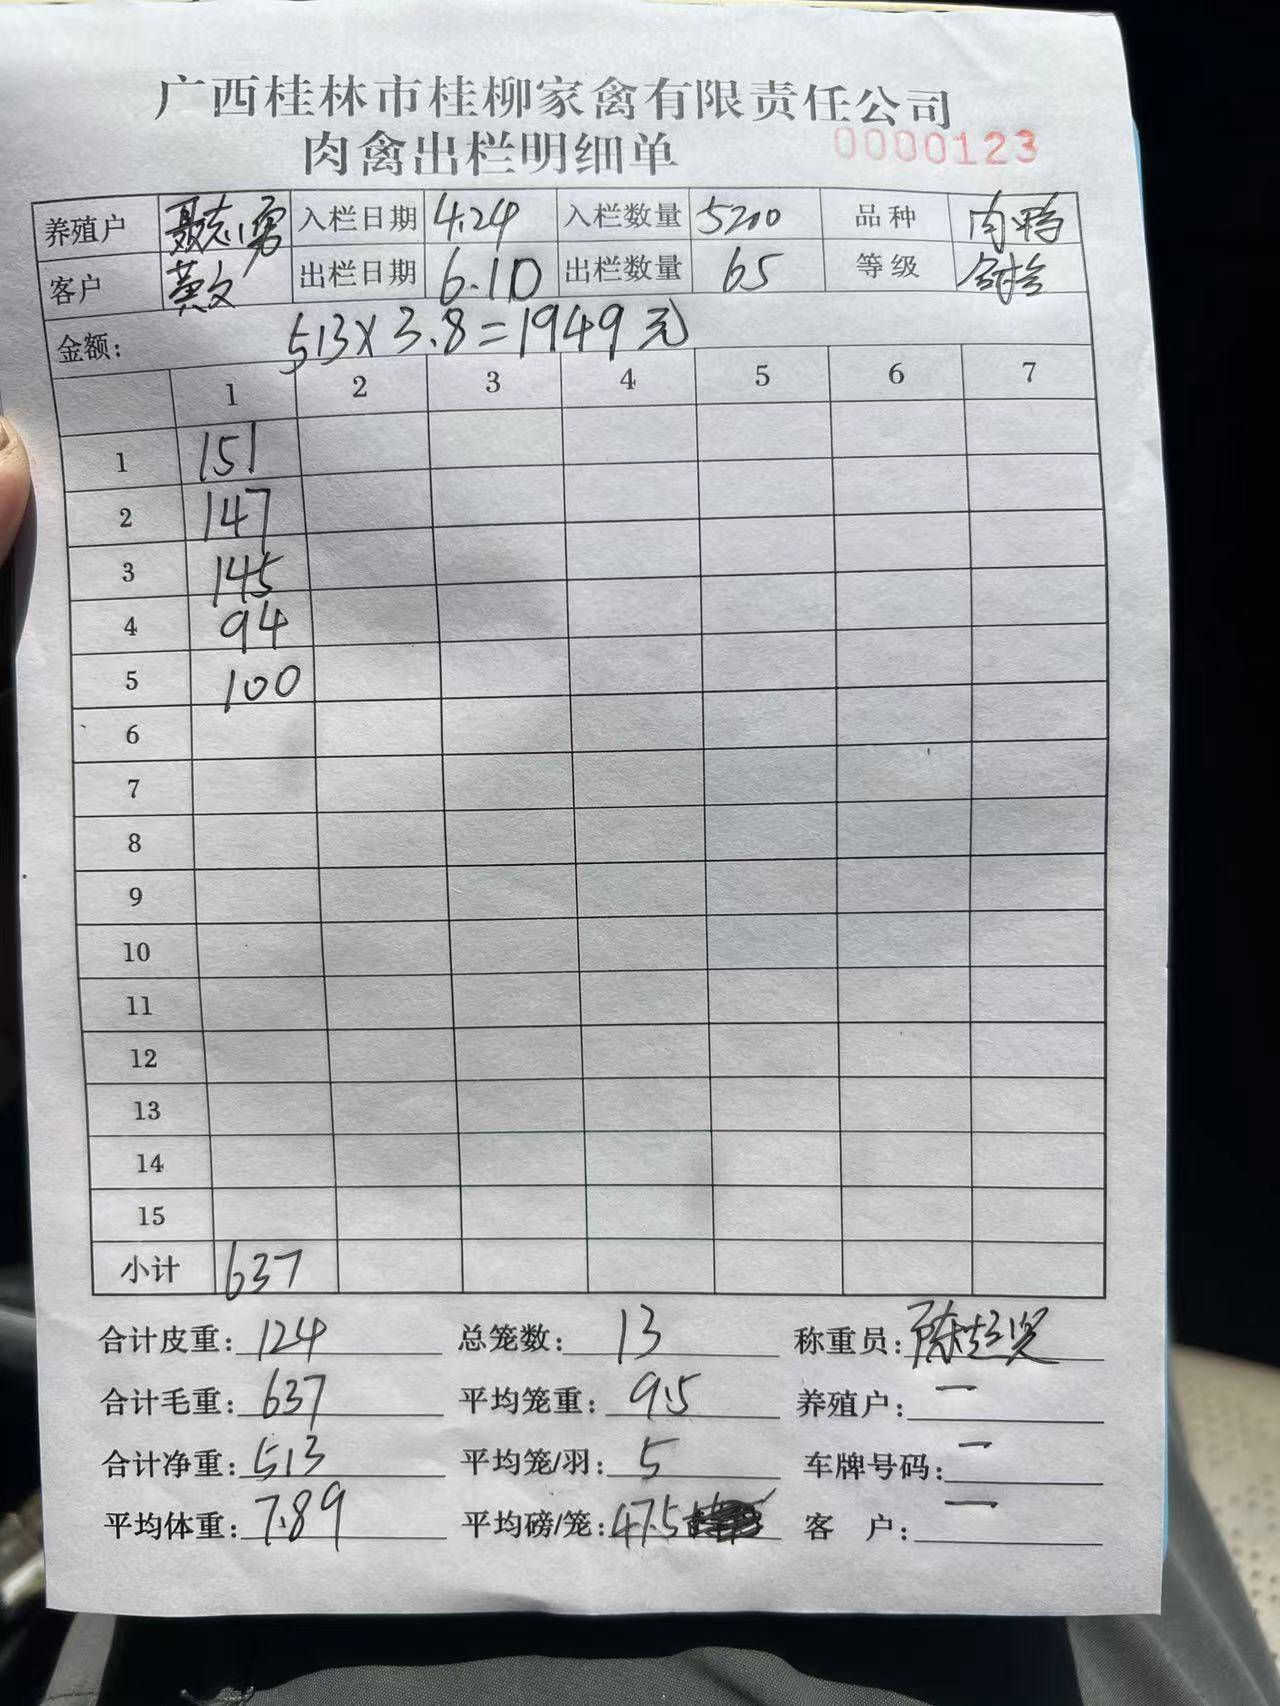 广西桂林市桂柳家禽有限责任公司
肉禽出栏明细单
0000123
养殖户 聂志勇 入栏日期 4.24 入栏数量 5200 品种 肉鸭
客户 黄文 出栏日期 6.10 出栏数量 65 等级
金额: 513×3.8=1949元
1 2 3 4 5 6 7
1 151
2 147
3 145
4 94
5 100
6
7
8
9
10
11
12
13
14
15
小计 637
合计皮重: 124 总笼数: 13 称重员:
合计毛重: 637 平均笼重: 9.5 养殖户: 一
合计净重: 513 平均笼/羽: 5 车牌号码: 一
平均体重: 7.89 平均磅/笼: 47.5 客 户: 一